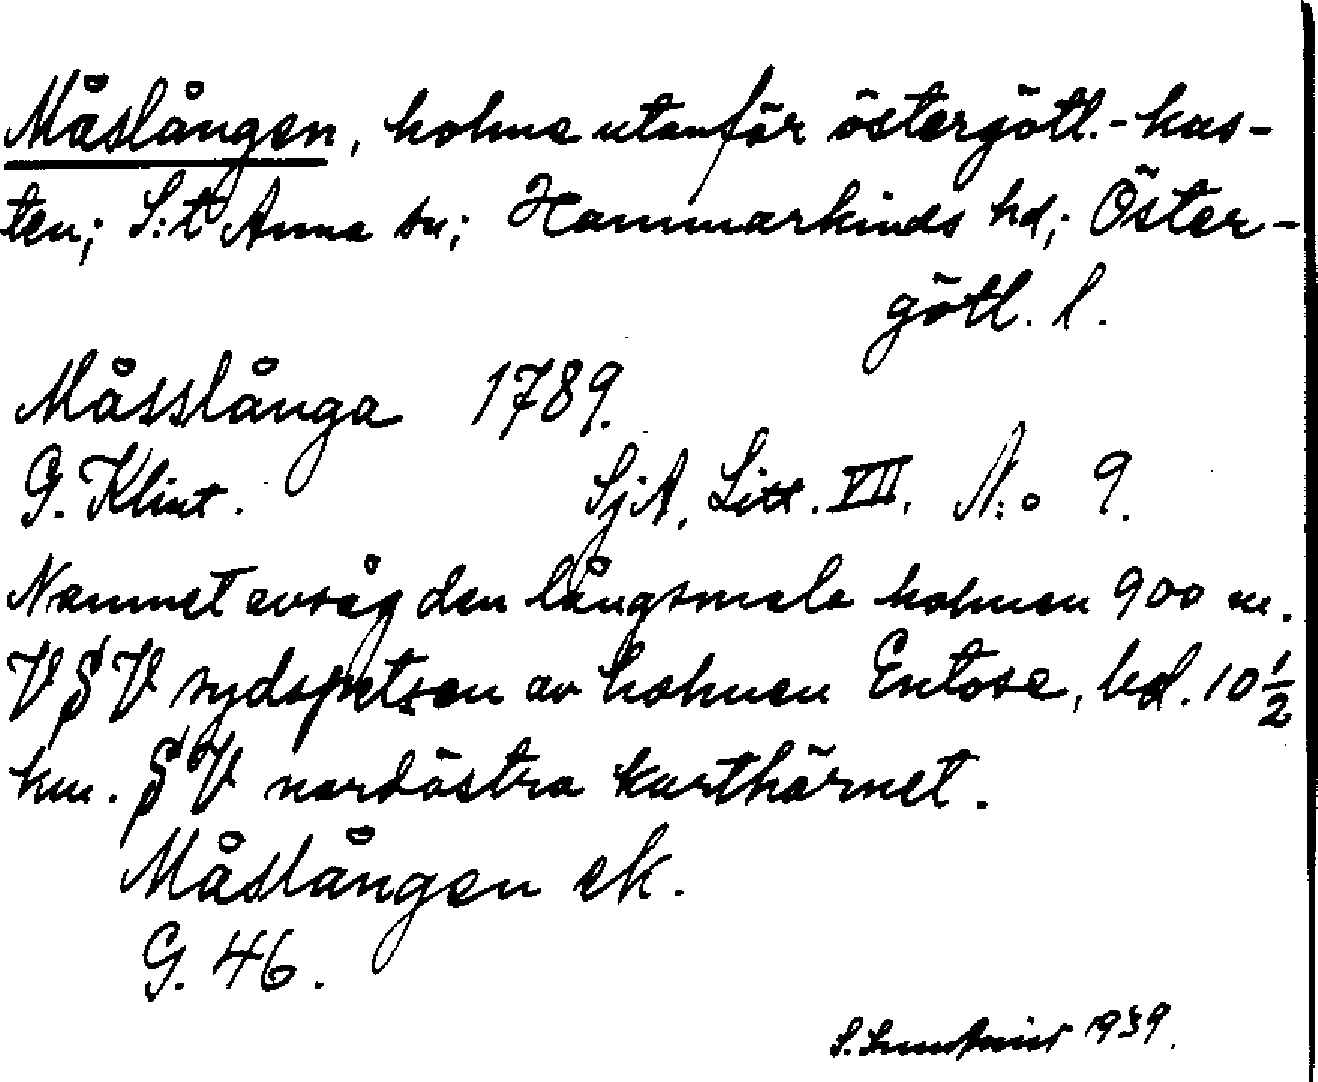 Måslången, holme utanför östergötl.-kus-
ten; S:t Anna sn; Hammarkinds hd; Öster-
götl. l.
Måsslånga 1789.
G. Klint. SjA, Litt. VII. N:o 9.
Namnet avsåg den långsmala holmen 900 m.
V§V sydspetsen av holmen Entose, bd. 10 1/2
km. §V nordöstra karthörnet.
Måslången ek.
G. 46.
S. 1939.